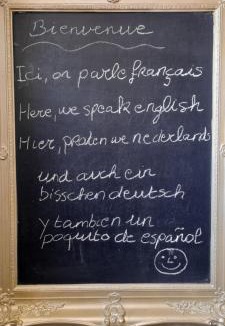 Bienvenue
Ici, on parle français
Here, we speak english
Hier, praten we nederlands
und auch ein
bisschen deutsch
y tambien un
poquito de español